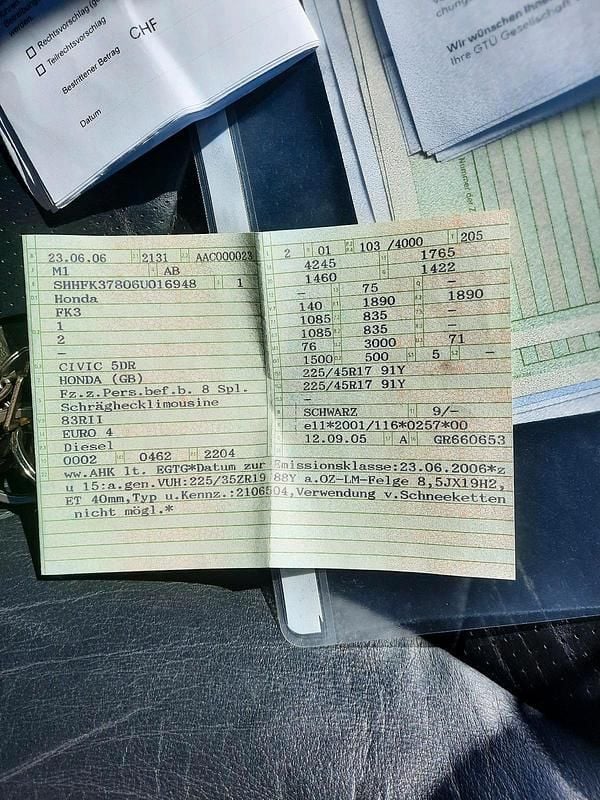 werden.
Rechtsvorschlag
Teilrechtsvorschlag
CHF
Bestrittener Betrag
Datum
Wir wünschen
Ihre GTÜ Gesellschaft
Nummer der
23.06.06 2131 AAC000023
M1 AB
SHHFK37806U016948 1
Honda
FK3
1
2
–
CIVIC 5DR
HONDA (GB)
Fz.z.Pers.bef.b. 8 Spl.
Schräghecklimousine
83RII
EURO 4
Diesel
0002 0462 2204
2 01 103 /4000 205
4245 1765
1460 1422
– 75 –
140 1890 1890
1085 835 –
1085 835 –
76 3000 71
1500 500 5 –
225/45R17 91Y
225/45R17 91Y
–
SCHWARZ 9/–
e11*2001/116*0257*00
12.09.05 A GR660653
ww.AHK lt. EGTG*Datum zur Emissionsklasse:23.06.2006*z
u 15:a.gen.VUH:225/35ZR19 88Y a.OZ-LM-Felge 8,5JX19H2,
ET 40mm,Typ u.Kennz.:2106504,Verwendung v.Schneeketten
nicht mögl.*